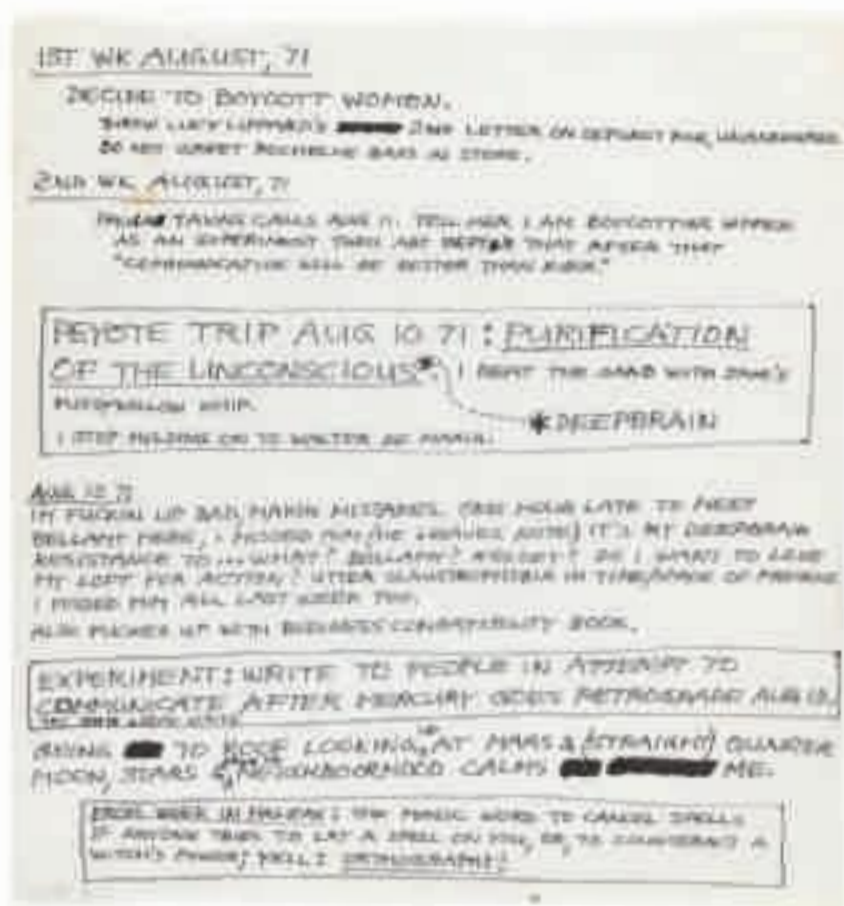 1ST WK AUGUST, 71
DECIDE TO BOYCOTT WOMEN.
THROW LUCY LIPPARD'S 2ND LETTER ON DEFUNCT PILE, UNANSWERED.
DO NOT GREET ROCHELLE BASS IN STORE.
2ND WK AUGUST, 71
TAKING CALLS AUG 11. TELL HER I AM BOYCOTTING WOMEN
AS AN EXPERIMENT THRU SEPTEMBER THAT AFTER THAT
"COMMUNICATION WILL BE BETTER THAN EVER."
PEYOTE TRIP AUG 10 71 : PURIFICATION
OF THE UNCONSCIOUS*. I BEAT THE WITH
WHIP.
*DEEPBRAIN
I STOP HOLDING ON TO WALTER DE MARIA.
AUG 12 71
IM FUCKIN UP BAD, MAKIN MISTAKES. ONE HOUR LATE TO MEET
BELLAMY HERE, I MISSED HIM (HE LEAVES NOTE) IT'S MY DEEPBRAIN
RESISTANCE TO ... WHAT? BELLAMY? DO I WANT TO LOSE
MY LOFT FOR ACTION? UTTER CLAUSTROPHOBIA IN TIME/SPACE OF
I MISSED HIM ALL LAST WEEK TOO.
ALSO FUCKED UP WITH BOOK.
EXPERIMENT: WRITE TO PEOPLE IN ATTEMPT TO
COMMUNICATE AFTER MERCURY GOES RETROGRADE AUG 12.
GOING TO ROOF LOOKING UP AT MARS & (STRAIGHT) QUARTER
MOON, STARS & NEIGHBOORHOOD CALMS ME.
WORK IN HALIFAX: THE MAGIC WORD TO CANCEL SPELLS
IF ANYONE TRIES TO LAY A SPELL ON YOU, OR, TO COUNTERACT A
WITCH'S POWER, YELL: ORTHOGRAPHY!